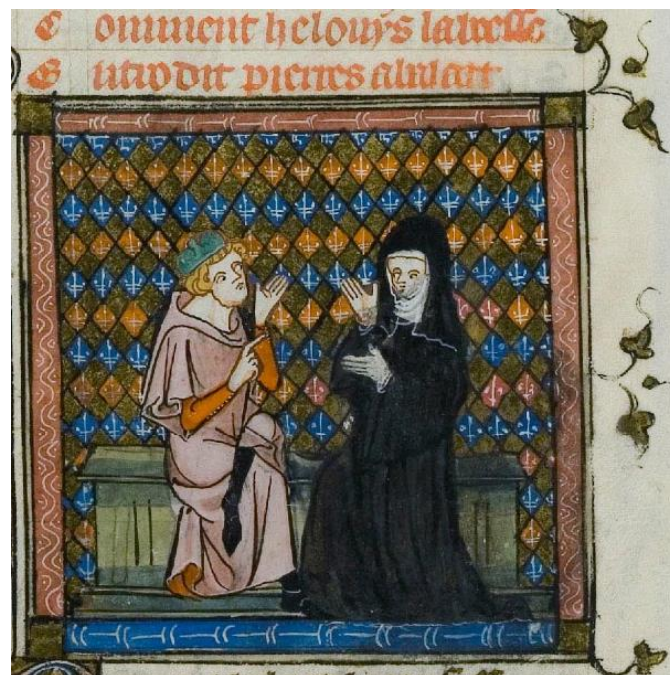 Comment heloys labeesse
Gitro dit pierres abalart